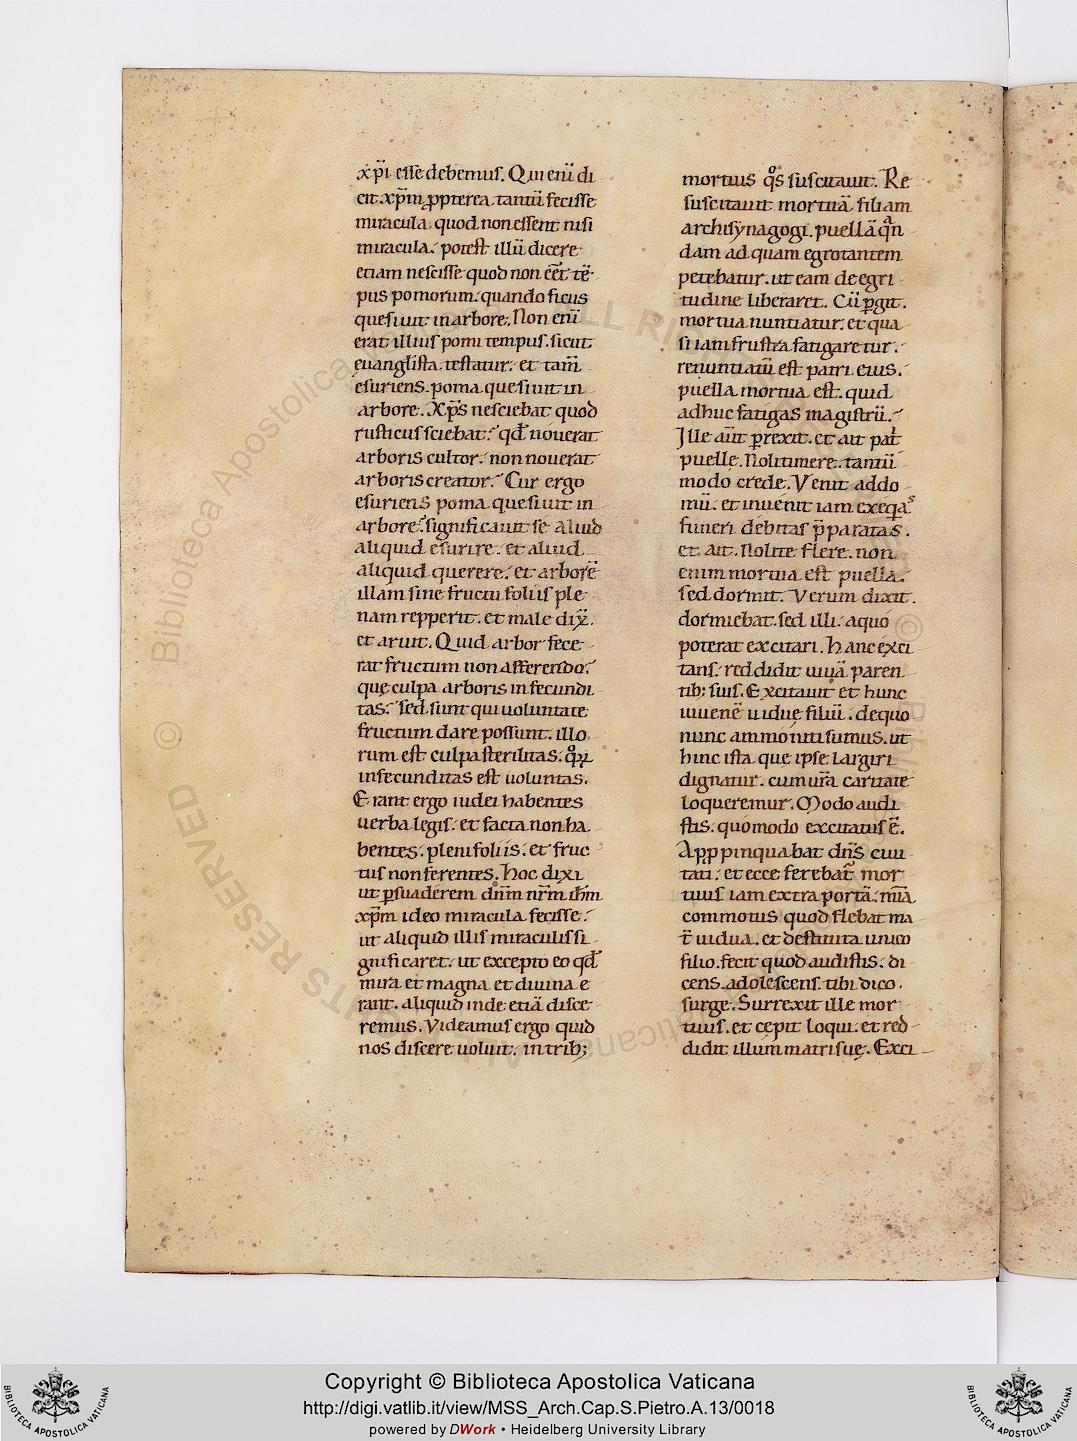 xp̄i esse debemus. Qui enī di
cit xp̄m ꝓpterea tantū fecisse
miracula. quod non essent nisi
miracula. potest illū dicere
etiam nescisse quod non eēt tē
pus pomorum. quando ficus
quesiuit in arbore. Non enī
erat illius pomi tempus. sicut
euanglista testatur. et tam̄
esuriens. poma quesiuit in
arbore. Xp̄s nesciebat quod
rusticus sciebat? qđ nouerat
arboris cultor. non nouerat
arboris creator? Cur ergo
esuriens poma quesiuit in
arbore? significauit se aliud
aliquid esurire. et aliud
aliquid querere. et arborē
illam sine fructu foliis ple
nam repperit. et male dix̄.
et aruit. Quid arbor fece
rat fructum non afferendo?
quę culpa arboris infecundi
tas? sed sunt qui uoluntate
fructum dare possunt. illo
rum est culpa sterilitas. qoꝝ
infecunditas est uoluntas.
Erant ergo iudei habentes
uerba legis. et facta non ha
bentes. pleni foliis. et fruc
tus non ferentes. Hoc dixi
ut ꝑsuaderem dn̄m nr̄m ih̄m
xp̄m ideo miracula fecisse.
ut aliquid illis miraculis si
gnificaret. ut excepto eo qđ
mira et magna et diuina e
rant. aliquid inde etiā disce
remus. Videamus ergo quid
nos discere uoluit. in trib;
mortuis qos suscitauit. Re
suscitauit mortuā filiam
archisynagogi. puellā qan
dam ad quam egrotantem
petebatur. ut eam de egri
tudine liberaret. Cū ꝑgit.
mortua nuntiatur. et qua
si iam frustra fatigaretur.
renuntiatū est patri eius.
puella mortua est. quid
adhuc fatigas magistrū.
Ille aūt ꝑrexit. et ait pat̄
puellę. Noli timere. tantū
modo crede. Venit ad do
mū. et inuenit iam exeqias
funeri debitas p̄paratas.
et ait. Nolite flere. non
enim mortua est puella.
sed dormit. Verum dixit.
dormiebat. sed illi. a quo
poterat excitari. Hanc exci
tans. reddidit uiuā paren
tib; suis. Excitauit et hunc
iuuenē uiduę filiū. de quo
nunc ammoniti sumus. ut
hinc ista que ipse largiri
dignatur. cum ur̄a caritate
loqueremur. Modo audi
stis. quomodo excitatus ē.
Appropinquabat dn̄s ciui
tati. et ecce ferebat̄ mor
tuus iam extra portā. mīa
commotus quod flebat ma
t̄ uidua. et destituta unico
filio. fecit quod audistis. di
cens. adolescens. tibi dico.
surge. Surrexit ille mor
tuus. et cępit loqui. et red
didit illum matri suę. Exci
© Biblioteca Apostolica Vaticana ALL RIGHTS RESERVED
Copyright © Biblioteca Apostolica Vaticana
http://digi.vatlib.it/view/MSS_Arch.Cap.S.Pietro.A.13/0018
powered by DWork • Heidelberg University Library
BIBLIOTECA APOSTOLICA VATICANA
BIBLIOTECA APOSTOLICA VATICANA